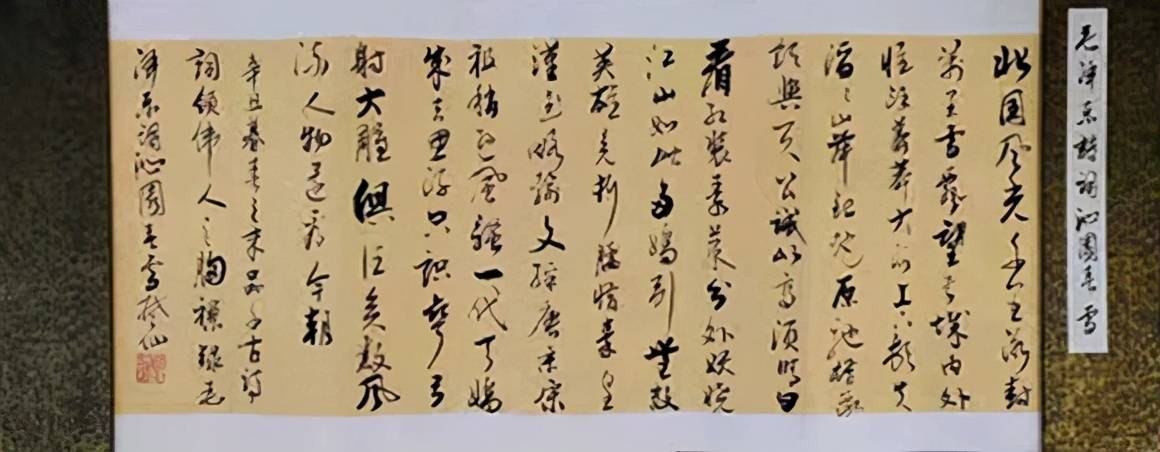 毛泽东诗词沁园春雪
北国风光千里冰封
万里雪飘望长城内外
惟余莽莽大河上下顿失
滔滔山舞银蛇原驰蜡象欲
与天公试比高须晴日
看红装素裹分外妖娆
江山如此多娇引无数
英雄竞折腰惜秦皇
汉武略输文采唐宗宋
祖稍逊风骚一代天骄
成吉思汗只识弯弓
射大雕俱往矣数风
流人物还看今朝
辛丑暮春之末品千古诗
词领伟人之胸襟录毛
泽东词沁园春雪